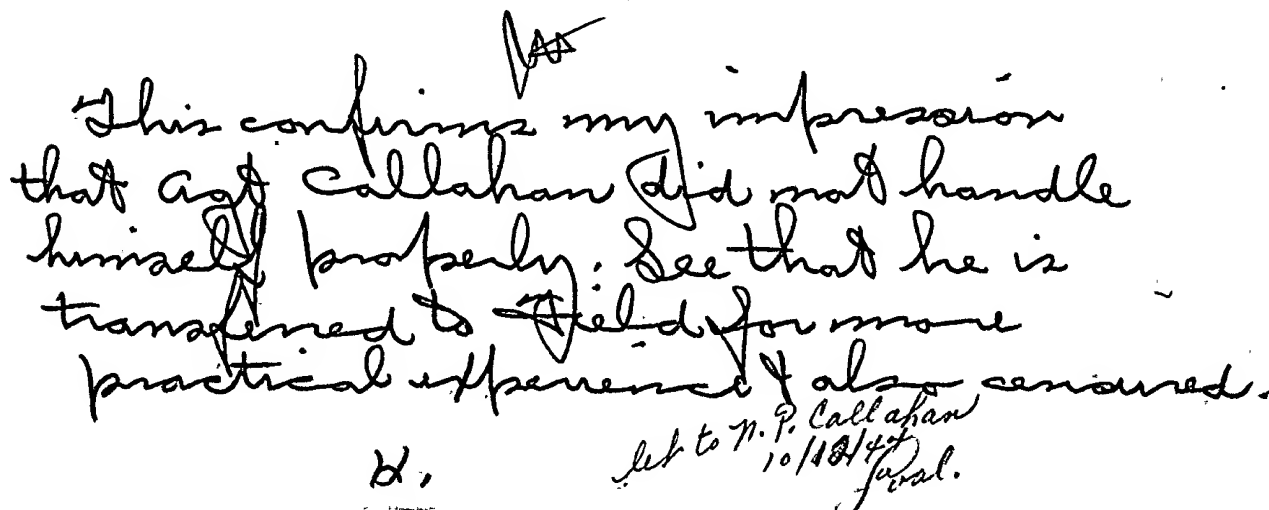 This confirms my impression
that Agt Callahan did not handle
himself properly. See that he is
transferred to Field for more
practical experience & also censured.
H.
let to N. P. Callahan
10/12/44